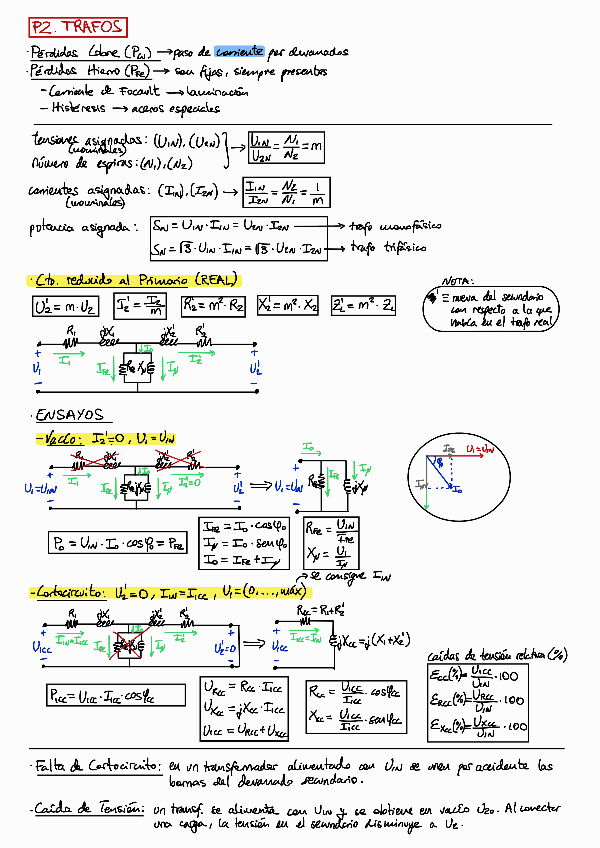 P2. TRAFOS
· Pérdidas Cobre (Pcu) → paso de corriente por devanados
· Pérdidas Hierro (PFe) → son fijas, siempre presentes
- Corriente de Focault → laminación
- Histéresis → aceros especiales
tensiones asignadas: (U1N), (U2N)
(nominales)
número de espiras: (N1), (N2)
→ U1N/U2N = N1/N2 = m
corrientes asignadas: (I1N), (I2N) → I1N/I2N = N2/N1 = 1/m
(nominales)
potencia asignada: SN = U1N · I1N = U2N · I2N → trafo monofásico
SN = √3 · U1N · I1N = √3 · U2N · I2N → trafo trifásico
· Cto. reducido al Primario (REAL)
U2' = m · U2
I2' = I2/m
R2' = m² · R2
X2' = m² · X2
ZL' = m² · ZL
NOTA:
' ≡ nueva del secundario
con respecto a la que
había en el trafo real
R1 jX1 jX2' R2'
I1 I0 I2'
U1 IFe RFe jXμ Iμ U2'
· ENSAYOS
- Vacío: I2' = 0, U1 = U1N
R1 jX1 jX2' R2'
I1 I0 I2'=0
U1=U1N IFe RFe jXμ Iμ U2'
⇒ I0 U1=U1N RFe IFe jXμ Iμ
IFe U1=U1N φ0 Iμ I0
P0 = U1N · I0 · cosφ0 = PFe
IFe = I0 · cosφ0
Iμ = I0 · senφ0
I0 = IFe + Iμ
RFe = U1N/IFe
Xμ = U1/Iμ
→ se consigue I1N
- Cortocircuito: U2' = 0, I1N = I1cc, U1 = (0,...,max)
R1 jX1 jX2' R2'
I1N=I1cc I0 I2'
U1cc IFe Iμ U2'=0
⇒ Rcc = R1+R2'
I1cc=I1N
U1cc jXcc = j(X1+X2')
P1cc = U1cc · I1cc · cosφcc
URcc = Rcc · I1cc
UXcc = jXcc · I1cc
U1cc = URcc + UXcc
Rcc = U1cc/I1cc · cosφcc
Xcc = U1cc/I1cc · senφcc
caídas de tensión relativa (%)
Ecc(%) = U1cc/U1N · 100
ERcc(%) = URcc/U1N · 100
EXcc(%) = UXcc/U1N · 100
· Falta de Cortocircuito: en un transformador alimentado con U1N se unen por accidente las
bornas del devanado secundario.
· Caída de Tensión: un transf. se alimenta con U1N y se obtiene en vacío U20. Al conectar
una carga, la tensión en el secundario disminuye a U2.